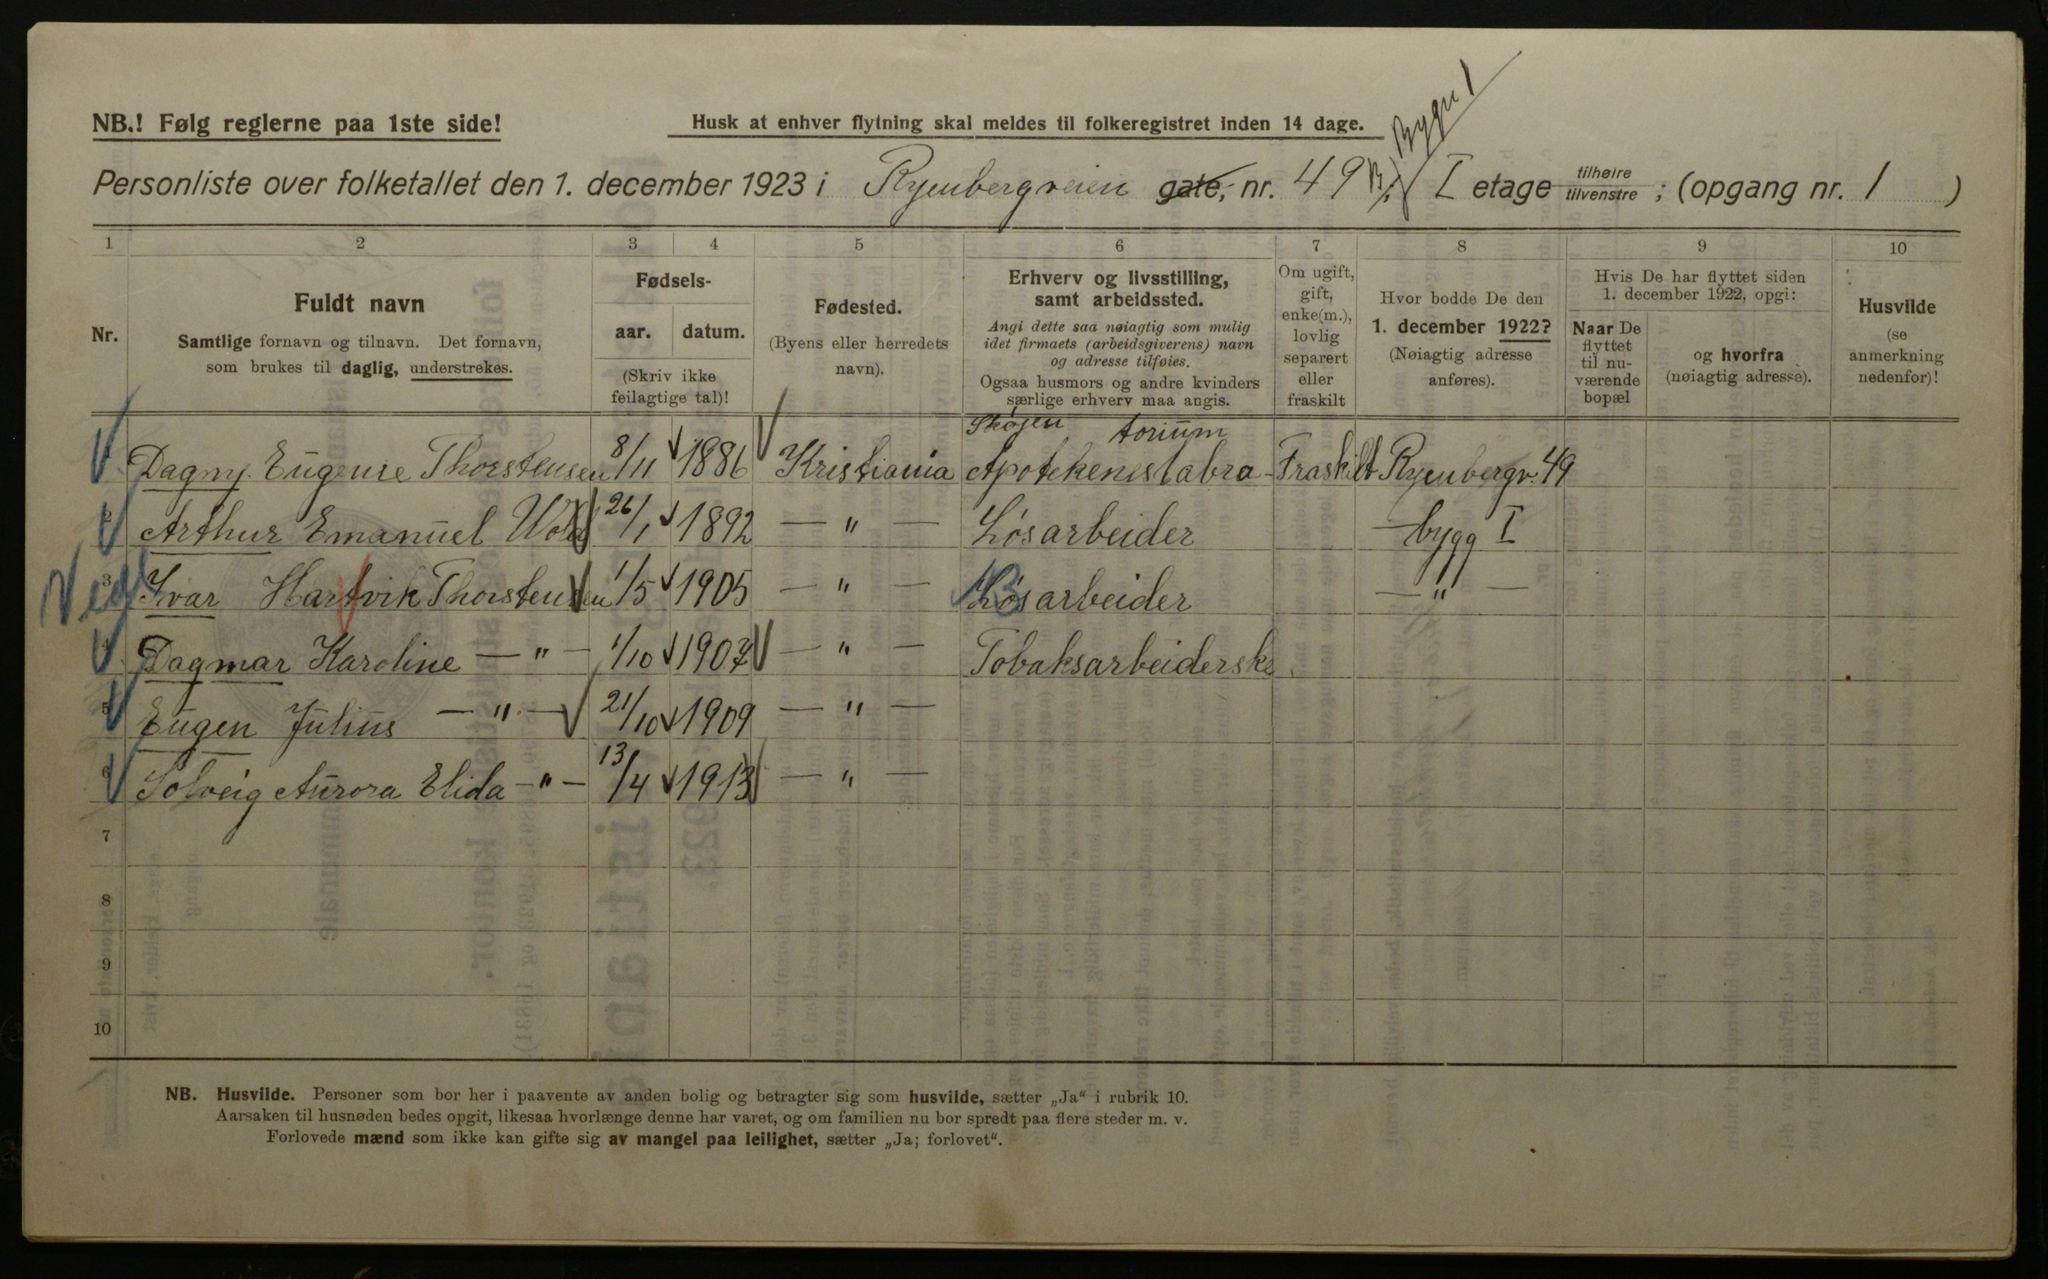 NB.! Følg reglerne paa 1ste side!
Husk at enhver flytning skal meldes til folkeregistret inden 14 dage.
Bygn 1
Personliste over folketallet den 1. december 1923 i Ryenbergveien gate, nr. 49 B I etage tilhøire tilvenstre ; (opgang nr. 1 )
1 2 3 4 5 6 7 8 9 10
Nr.
Fuldt navn
Samtlige fornavn og tilnavn. Det fornavn,
som brukes til daglig, understrekes.
Fødsels-
aar. datum.
(Skriv ikke
feilagtige tal)!
Fødested.
(Byens eller herredets
navn).
Erhverv og livsstilling,
samt arbeidssted.
Angi dette saa nøiagtig som mulig
idet firmaets (arbeidsgiverens) navn
og adresse tilføies.
Ogsaa husmors og andre kvinders
særlige erhverv maa angis.
Om ugift,
gift,
enke(m.),
lovlig
separert
eller
fraskilt
Hvor bodde De den
1. december 1922?
(Nøiagtig adresse
anføres).
Hvis De har flyttet siden
1. december 1922, opgi:
Naar De
flyttet
til nu-
værende
bopæl
og hvorfra
(nøiagtig adresse).
Husvilde
(se
anmerkning
nedenfor)!
Skøjen torium
Dagny Eugenie Thorstensen 8/11 1886 Kristiania Apotekeneslabra- Fraskilt Ryenbergv. 49
2 Arthur Emanuel Wold 26/1 1892 — " — Løsarbeider — bygg I
3 Ivar Hartvik Thorstensen 1/5 1905 — " — Løsarbeider — " —
4 Dagmar Karoline — " — 1/10 1907 — " — Tobaksarbeiderske
5 Eugen Julius — " — 21/10 1909 — " —
6 Solveig Aurora Elida — " — 13/4 1913 — " —
7
8
9
10
NB. Husvilde. Personer som bor her i paavente av anden bolig og betragter sig som husvilde, sætter „Ja“ i rubrik 10.
Aarsaken til husnøden bedes opgit, likesaa hvorlænge denne har varet, og om familien nu bor spredt paa flere steder m. v.
Forlovede mænd som ikke kan gifte sig av mangel paa leilighet, sætter „Ja; forlovet“.